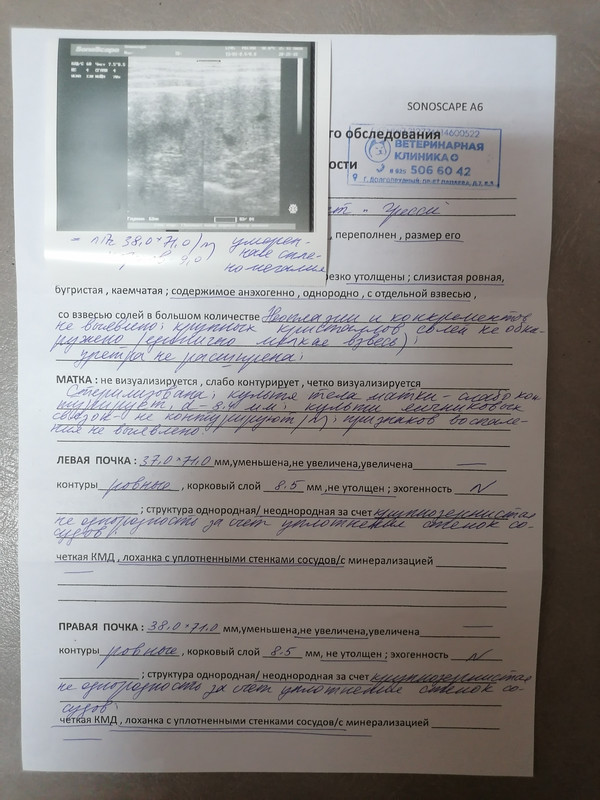 SonoScape
SONOSCAPE A6
го обследования
ости
ВЕТЕРИНАРНАЯ
КЛИНИКА
506 60 42
38,0*71,0
, переполнен , размер его
резко утолщены ; слизистая ровная,
бугристая , каемчатая ; содержимое анэхогенно , однородно , с отдельной взвесью ,
со взвесью солей в большом количестве Неоплазии и конкрементов
не выявлено; крупных кристаллов солей не обна-
ружено (единично мелкая взвесь);
уретра не расширена;
МАТКА : не визуализируется , слабо контурирует , четко визуализируется
Стерилизована; культя тела матки - слабо кон
турирует, d - 8.4 мм; культи яичниковых
связок не контурируют ; признаков воспале-
ния не выявлено
ЛЕВАЯ ПОЧКА : 37,0*71,0 мм,уменьшена,не увеличена,увеличена
контуры ровные , корковый слой 8.5 мм ,не утолщен ; эхогенность N
; структура однородная/ неоднородная за счет крупнозернистая
не однородность за счет уплотнения стенок со-
судов;
четкая КМД , лоханка с уплотненными стенками сосудов/с минерализацией
ПРАВАЯ ПОЧКА : 38,0*71,0 мм,уменьшена,не увеличена,увеличена
контуры ровные , корковый слой 8.5 мм ,не утолщен ; эхогенность N
; структура однородная/ неоднородная за счет крупнозернистая
не однородность за счет уплотнения стенок со-
судов;
четкая КМД , лоханка с уплотненными стенками сосудов/с минерализацией